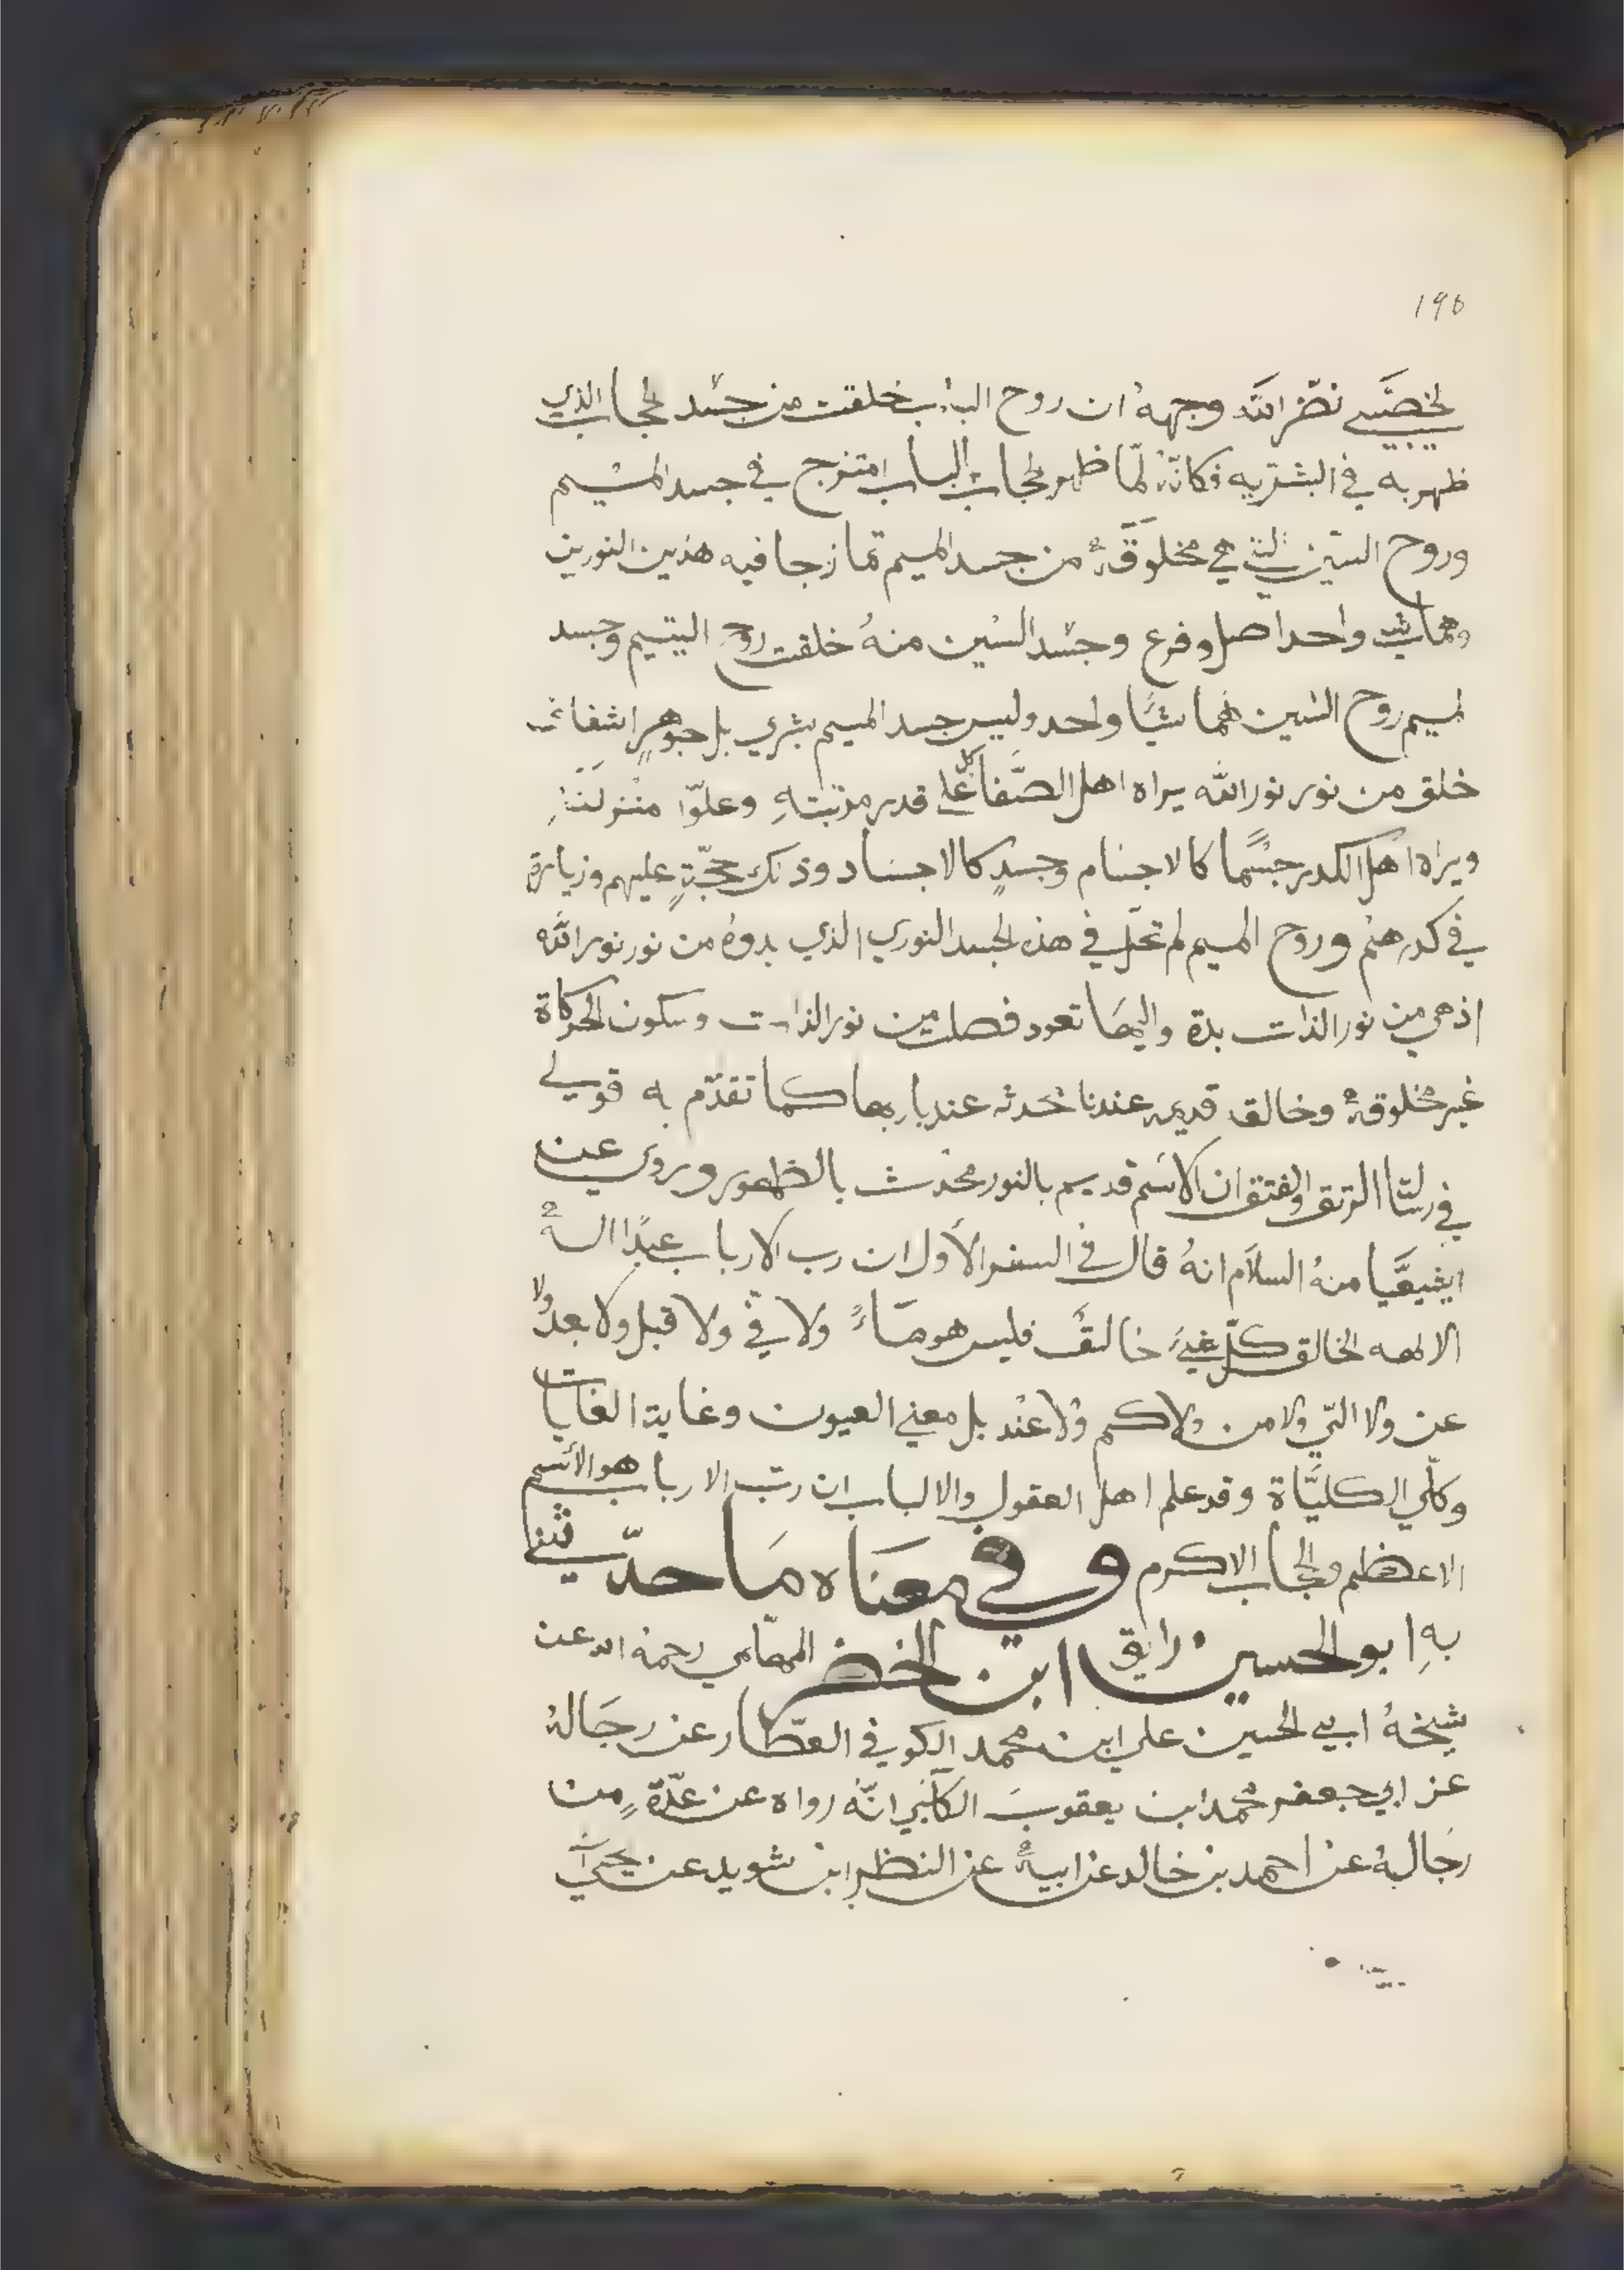 195
لخصيبي نضر الله وجهه ان روح الباب خلقت من جسد لحجاب الذي
ظهر به في البشريه فكانّه لمّا ظهر لحجاب الباب امتزج في جسد الميم
وروح السين التي هي مخلوقة من جسد الميم تمازجا فيه هذين النورين
وهما شي واحد اصل وفرع وجسد السين منهُ خلقت روح اليتيم وجسد
لميم روح السين هما شيًا واحد وليس جسد الميم بشري بل جوهرٍ
خلق من نور نور الله يراه اهل الصّفا كلّ على قدر مرتبتهِ وعلوّا منزلته
ويراه اهل الكدر جسمًا كالاجسام وجسدٍ كالاجساد وذلك حجّةٍ عليهم وزيادة
في كدرهم وروح الميم لم تحلّ في هذه لجسد النوري الذي بدوهُ من نور نور الله
اذ هي من نور الذات بدة واليها تعود فصلت من نور الذات وسكون الحركاة
غير مخلوقة وخالق قديم عندنا محدثه عند باريها كما تقدّم به قولي
في رلتنا الرتق والفتق ان الاسم قديم بالنور محدث بالظهور وروى عن
ايشعيّا منهُ السلام انهُ قال في السفر الأول ان رب الارباب عبدًا اله
الالهه الخالق كلّ خالقَ فليس هو ولا في ولا قبل ولا بعد ولا
عن ولا التي ولا من ولا كم ولا عند بل معني العيون وغاية الغايات
وكلّي الكليّاة وقد علم اهل العقول والالباب ان ربّ الارباب هو الأسم
الاعظم ولحجاب الاكرم وفي معناه ما حدّثني
بهِ ابو الحسين رايق ابن الخضر المهامي رحمه الله عن
شيخهُ ابي الحسين علي ابن محمد الكوفي العطّار عن رجالهُ
عن ابي جعفر محمد ابن يعقوب الكلّني انّه رواه عن عدّةٍ من
رجالهُ عن احمد بن خالد عن ابيهُ عن النظر ابن سويد عن يحيى